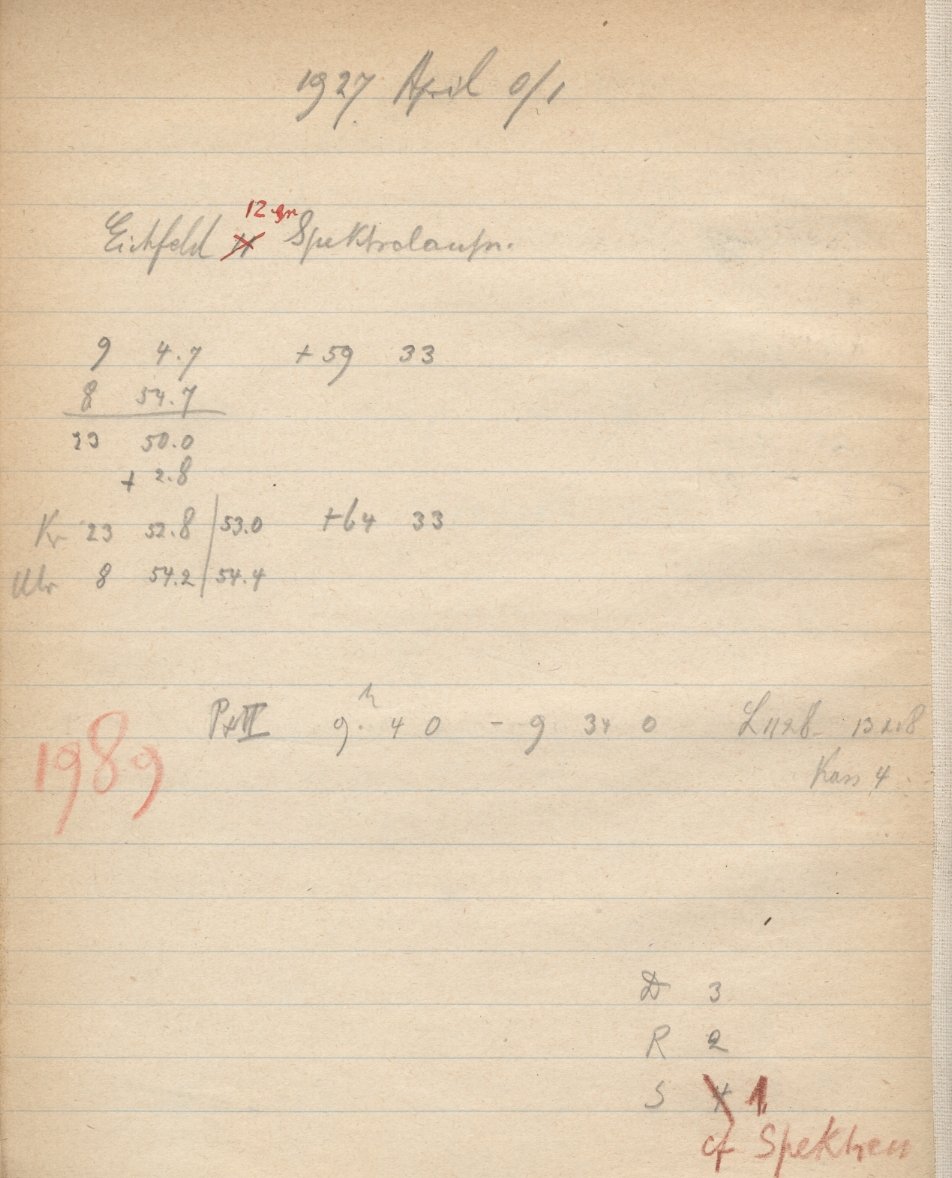 1927 April 0/1
12 gr
Eichfeld Spektralaufn.
9 4.7 +59 33
8 54.7
23 50.0
+ 2.8
Kr 23 52.8 53.0 +64 33
Uhr 8 54.2 54.4
9h 4 0 - 9 34 0
Kass 4
1989
D 3
R 2
S 4 1
cf Spektren